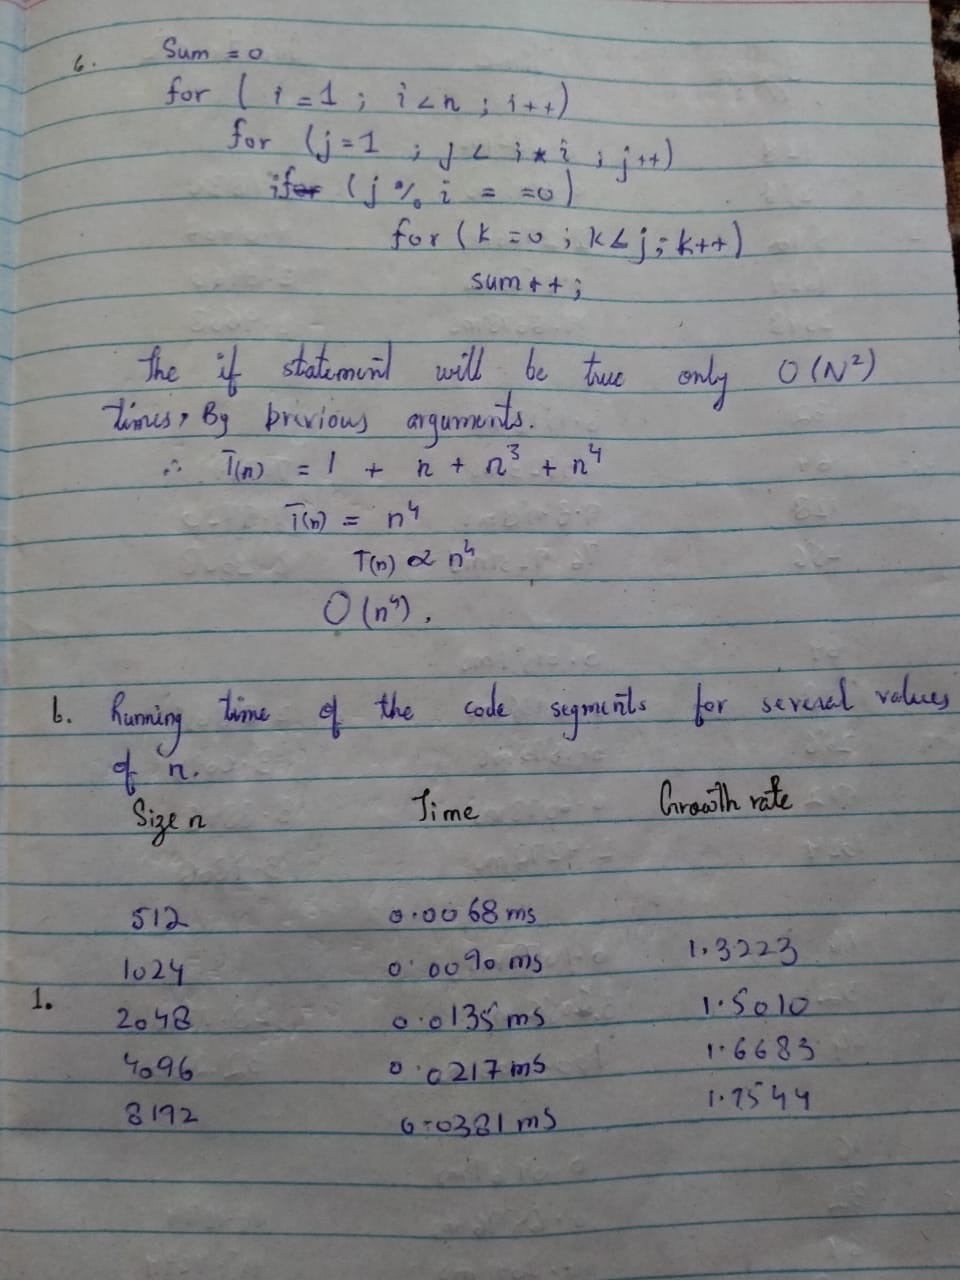 6. Sum = 0
for ( i = 1 ; i < n ; i++)
for (j = 1 ; j < i * i ; j++)
if (j % i = = 0)
for (k = 0 ; k < j ; k++)
sum++ ;
The if statement will be true only O(N²)
times, By previous arguments.
∴ T(n) = 1 + n + n³ + n⁴
T(n) = n⁴
T(n) ∝ n⁴
O(n⁴).
b. Running time of the code segments for several values
of n.
Size n Time Growth rate
512 0.0068 ms
1024 0.0090 ms 1.3223
1.
2048 0.0135 ms 1.5010
4096 0.0217 ms 1.6683
8192 0.0381 ms 1.7544